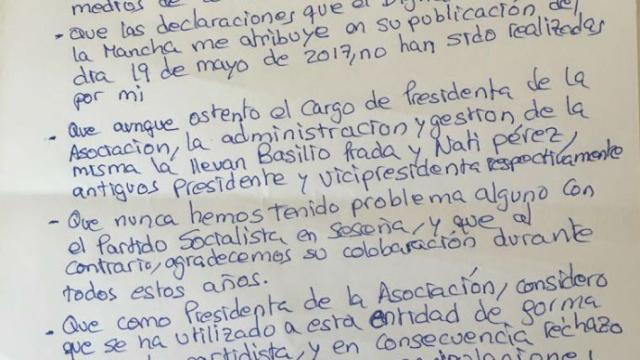 medios de
- Que las declaraciones que el Dig
la Mancha me atribuye en su publicación del
dia 19 de mayo de 2017, no han sido realizadas
por mi
- Que aunque ostento el cargo de Presidenta de la
Asociacion, la administracion y gestion de la
misma la llevan Basilio Prada y Nati pérez,
antiguos Presidente y Vicipresidenta respectivamente
- Que nunca hemos tenido problema alguno con
el Partido Socialista en Seseña, y que al
contrario, agradecemos su colobaración durante
todos estos años.
- Que como Presidenta de la Asociación, considero
que se ha utilizado a esta entidad de forma
partidista, y en consecuencia rechazo